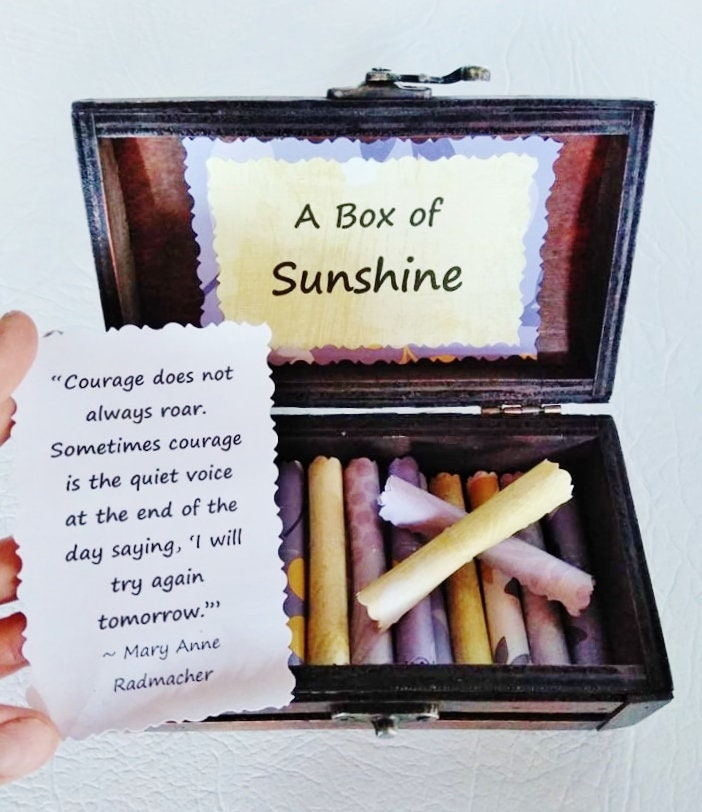 A Box of
Sunshine
“Courage does not
always roar.
Sometimes courage
is the quiet voice
at the end of the
day saying, ‘I will
try again
tomorrow.’”
~ Mary Anne
Radmacher